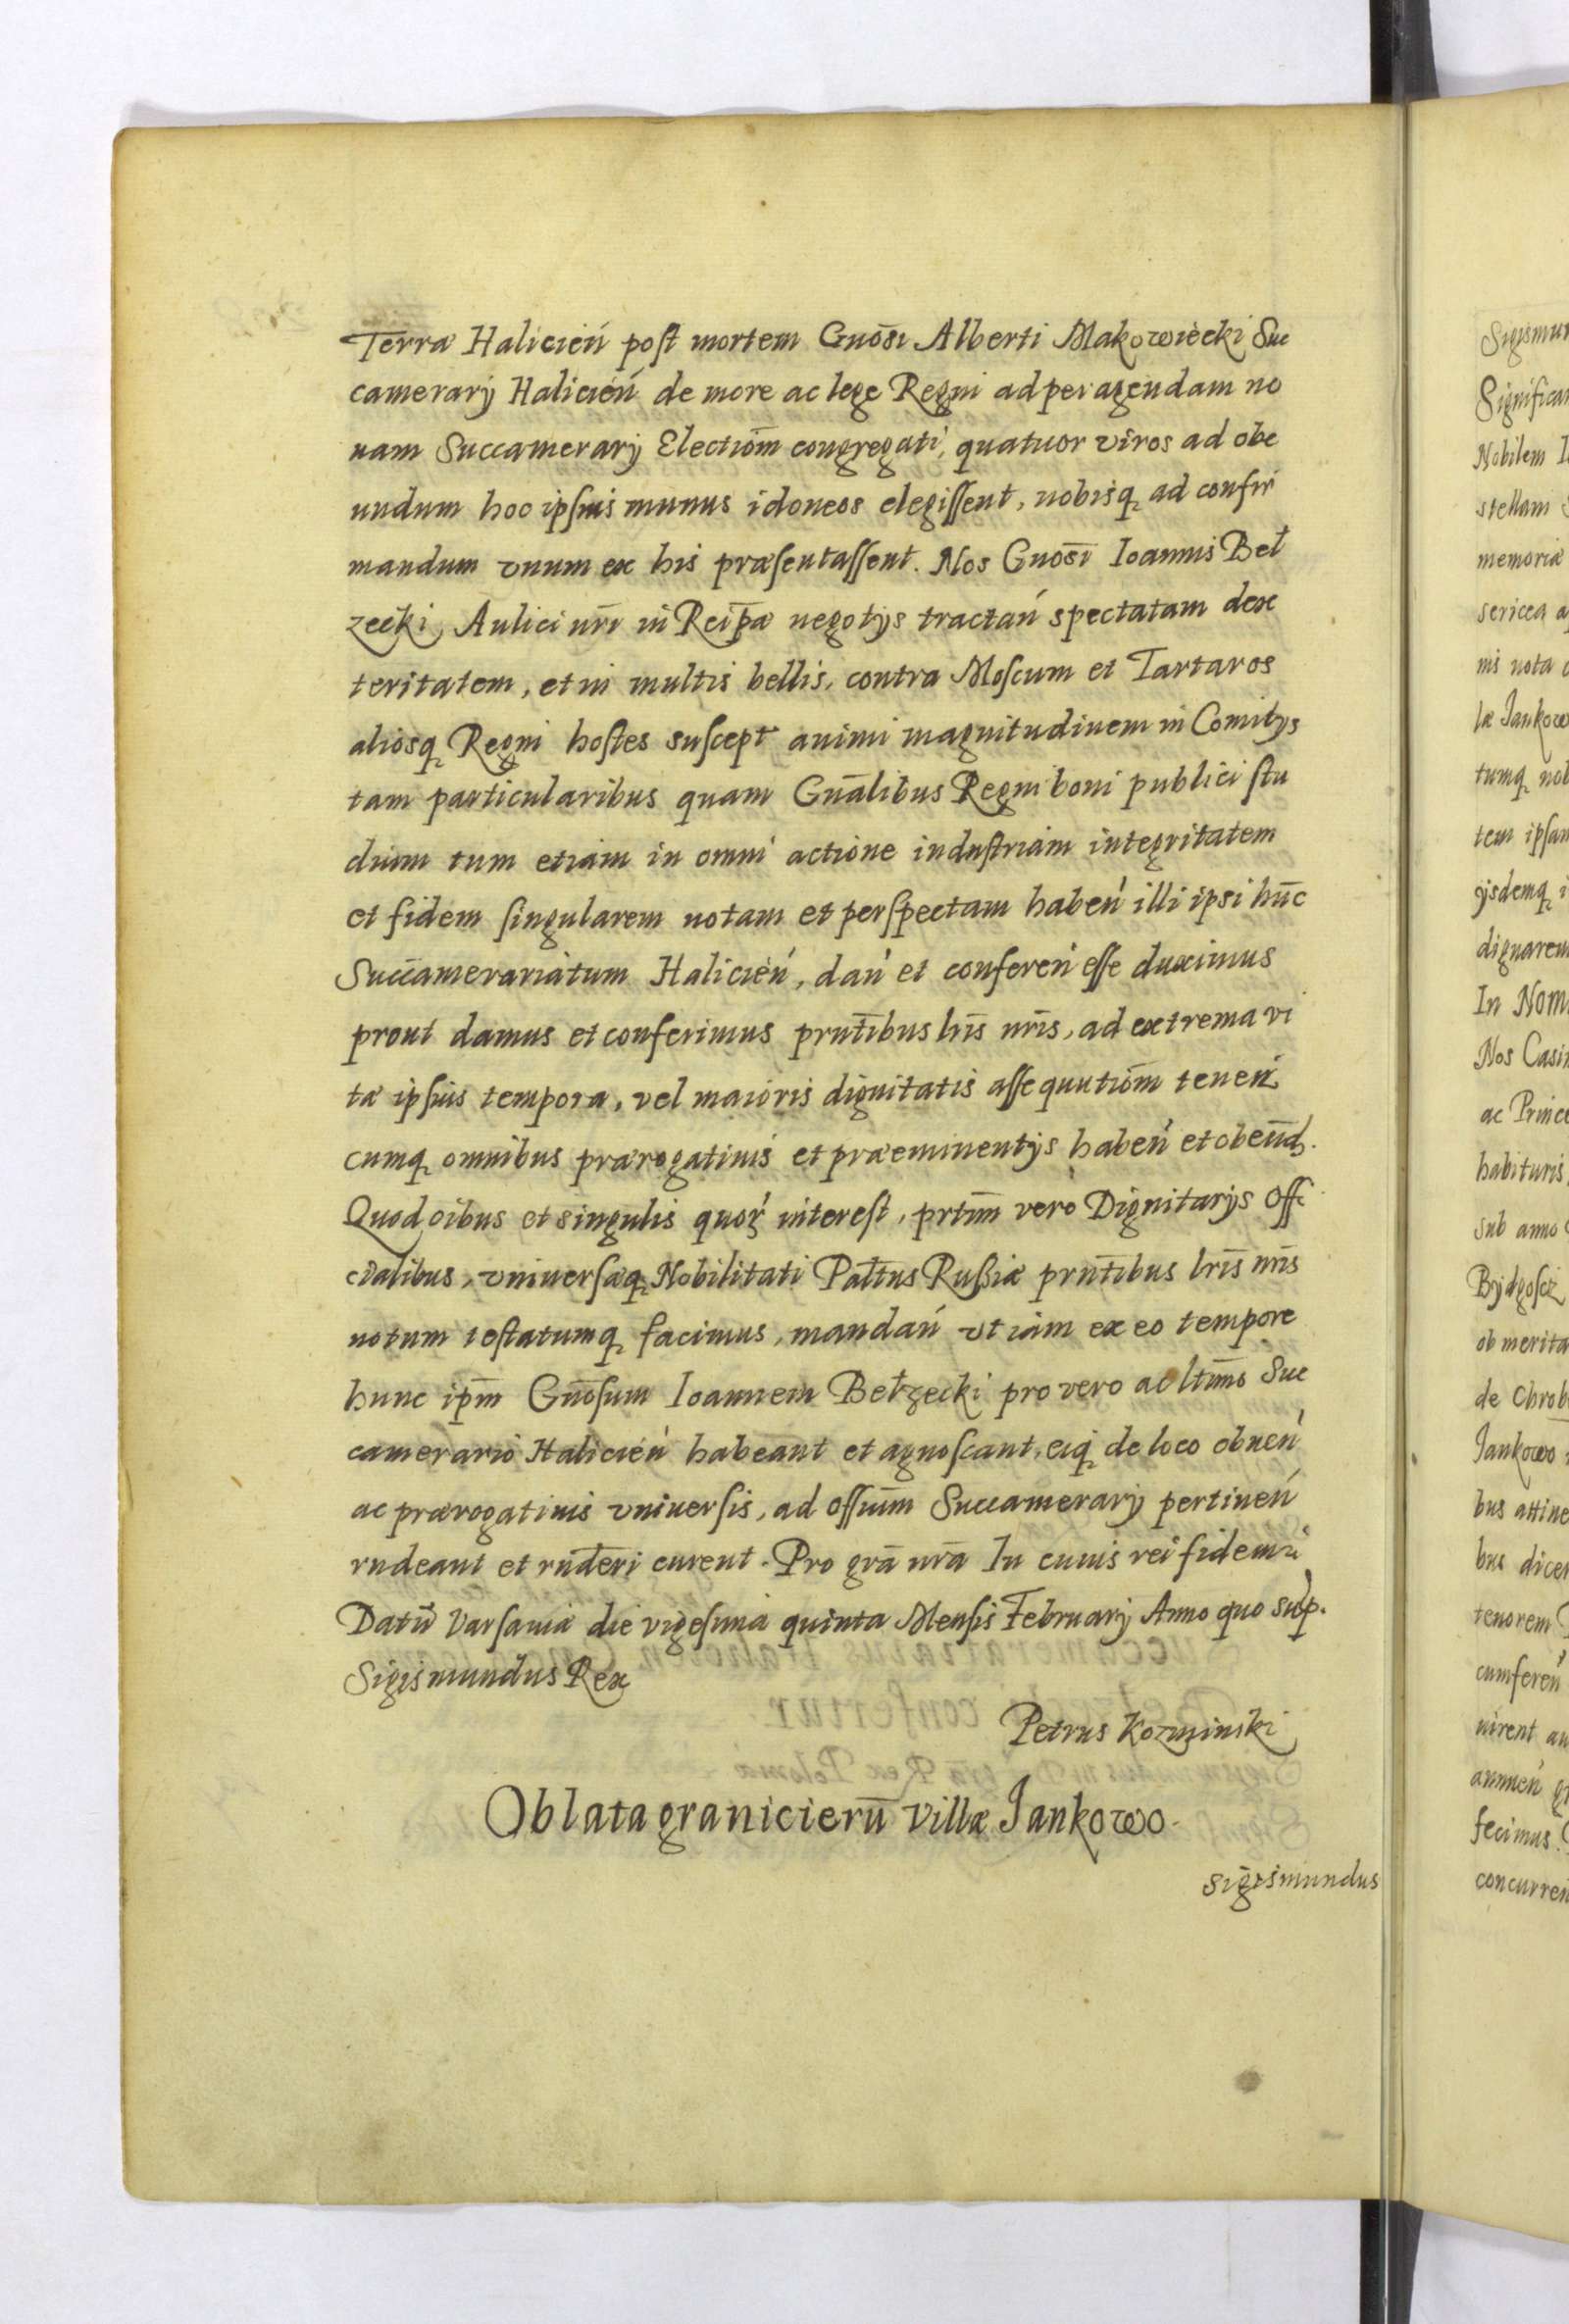 Terræ Halicień post mortem Gnōsi Alberti Makowiecki Suc
camerarij Halicień de more ac lege Regni ad peragendam no
uam Succamerarij Electiōm congregati, quatuor viros ad obe
undum hoc ipsius munus idoneos elegissent, nobisq ad confir
mandum vnum ex his præsentassent. Nos Gnosī Ioannis Beł
zecki, Aulici nr̄i in Reip̄æ negotys tractań spectatam dex
teritatem, et in multis bellis, contra Moscum et Tartaros
aliosq Regni hostes suscept animi magnitudinem in Comitys
tam particularibus quam Gnālibus Regni boni publici stu
dium tum etiam in omni actione industriam integritatem
et fidem singularem notam et perspectam habeń illi ipsi hūc
Succamerariatum Halicień, dań et confereń esse duximus
prout damus et conferimus prnt̄ibus lrīs nr̄is, ad extrema vi
tæ ipsius tempora, vel maioris dignitatis assequutiōm teneń
cumq omnibus prærogatiuis et præeminentys habeń et obeūd.
Quod oibus et singulis quoꝝ interest, prtīm vero Dignitarys Offi
cialibus, vniuersæq Nobilitati Palt̄nus Russiæ prnt̄ibus lrīs nr̄is
notum testatumq facimus, mandań vt iam ex eo tempore
hunc ipm̄ Gnōsum Ioannem Bełzecki pro vero ac ltīmo Suc
camerario Halicień habeant et agnoscant, eiq de loco obueń
ac prærogatiuis vniuersis, ad offium̄ Succamerarij pertineń
rndeant et rnderi̅ curent. Pro grā nrā In cuius rei fidem
Datū Varsauiæ die vigesima quinta Mensis February Anno quo sup.
Sigismundus Rex
Petrus Kozminski
Oblata granicierū villæ Jankowo.
Sigismundus
Sigismun
Significa
Nobilem I
stellam
memoriæ
sericea a
nis nota
læ Jankow
tumq nob
tem ipsam
ijsdemq i
dignarem
In Nom
Nos Casi
ac Prince
habituris
sub anno
Bydgoscz
ob merita
de Chrob
Jankowo
bus attine
bus dice
tenorem
cumfereń
uirent au
annueń g
fecimus.
concurreń